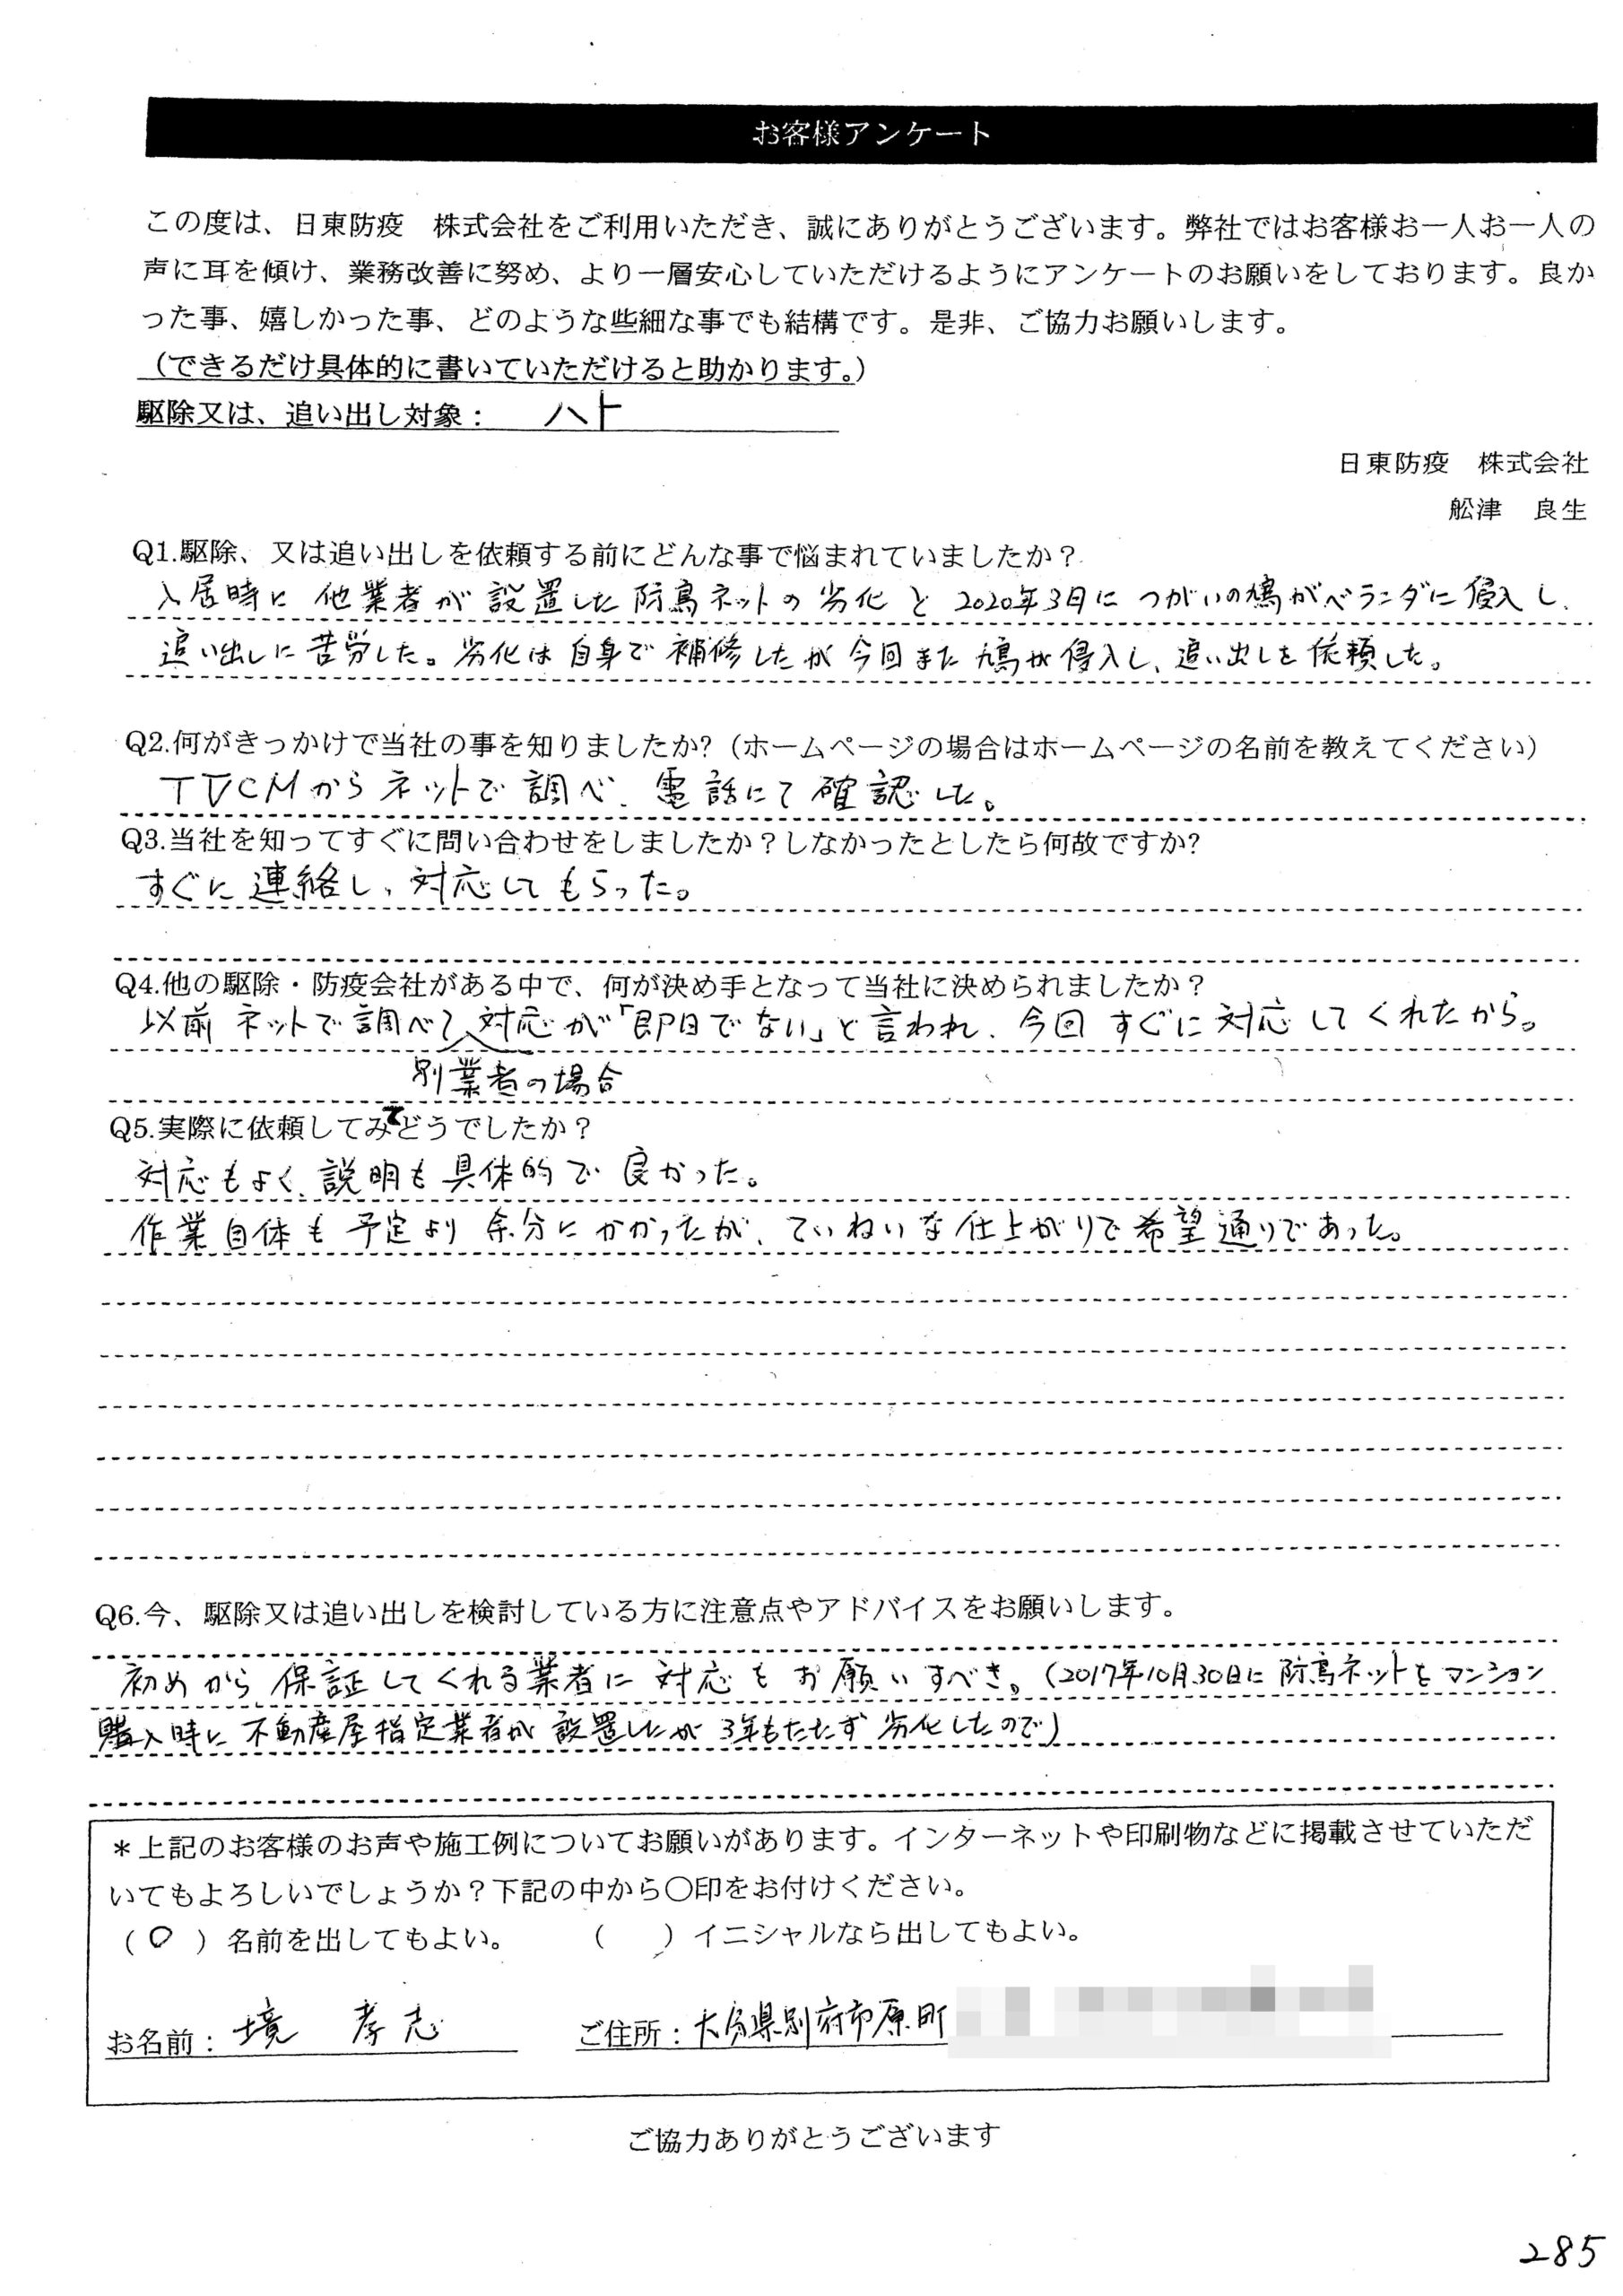 お客様アンケート
この度は、日東防疫　株式会社をご利用いただき、誠にありがとうございます。弊社ではお客様お一人お一人の
声に耳を傾け、業務改善に努め、より一層安心していただけるようにアンケートのお願いをしております。良か
った事、嬉しかった事、どのような些細な事でも結構です。是非、ご協力お願いします。
（できるだけ具体的に書いていただけると助かります。）
駆除又は、追い出し対象：　ハト
日東防疫　株式会社
舩津　良生
Q1.駆除、又は追い出しを依頼する前にどんな事で悩まれていましたか？
入居時に他業者が設置した防鳥ネットの劣化と2020年3月につがいの鳩がベランダに侵入し、
追い出しに苦労した。劣化は自身で補修したが今回また鳩が侵入し、追い出しを依頼した。
Q2.何がきっかけで当社の事を知りましたか?（ホームページの場合はホームページの名前を教えてください）
TVCMからネットで調べ、電話にて確認した。
Q3.当社を知ってすぐに問い合わせをしましたか？しなかったとしたら何故ですか?
すぐに連絡し、対応してもらった。
Q4.他の駆除・防疫会社がある中で、何が決め手となって当社に決められましたか？
以前ネットで調べて対応が「即日でない」と言われ、今回すぐに対応してくれたから。
別業者の場合
Q5.実際に依頼してみてどうでしたか？
対応もよく、説明も具体的で良かった。
作業自体も予定より余分にかかったが、ていねいな仕上がりで希望通りであった。
Q6.今、駆除又は追い出しを検討している方に注意点やアドバイスをお願いします。
初めから保証してくれる業者に対応をお願いすべき。（2017年10月30日に防鳥ネットをマンション
購入時に不動産屋指定業者が設置したが3年もたたず劣化したので）
＊上記のお客様のお声や施工例についてお願いがあります。インターネットや印刷物などに掲載させていただ
いてもよろしいでしょうか？下記の中から〇印をお付けください。
（〇）名前を出してもよい。　（　）イニシャルなら出してもよい。
お名前：境　孝志　ご住所：大分県別府市原町
ご協力ありがとうございます
285